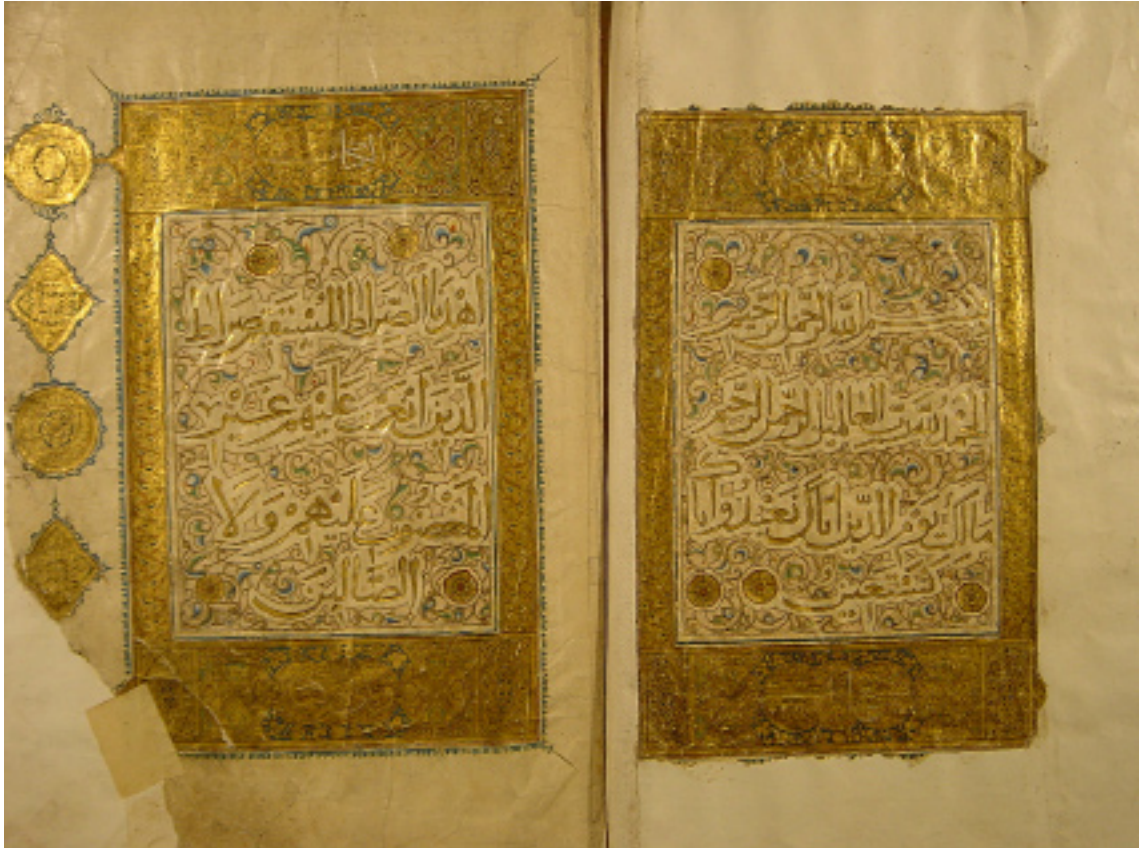 بسم الله الرحمن الرحيم
الحمد لله رب العالمين الرحمن الرحيم
مالك يوم الدين اياك نعبد وايا
ك نستعين
اهدنا الصراط المستقيم صراط
الذين انعمت عليهم غير
المغضوب عليهم ولا
الضالين